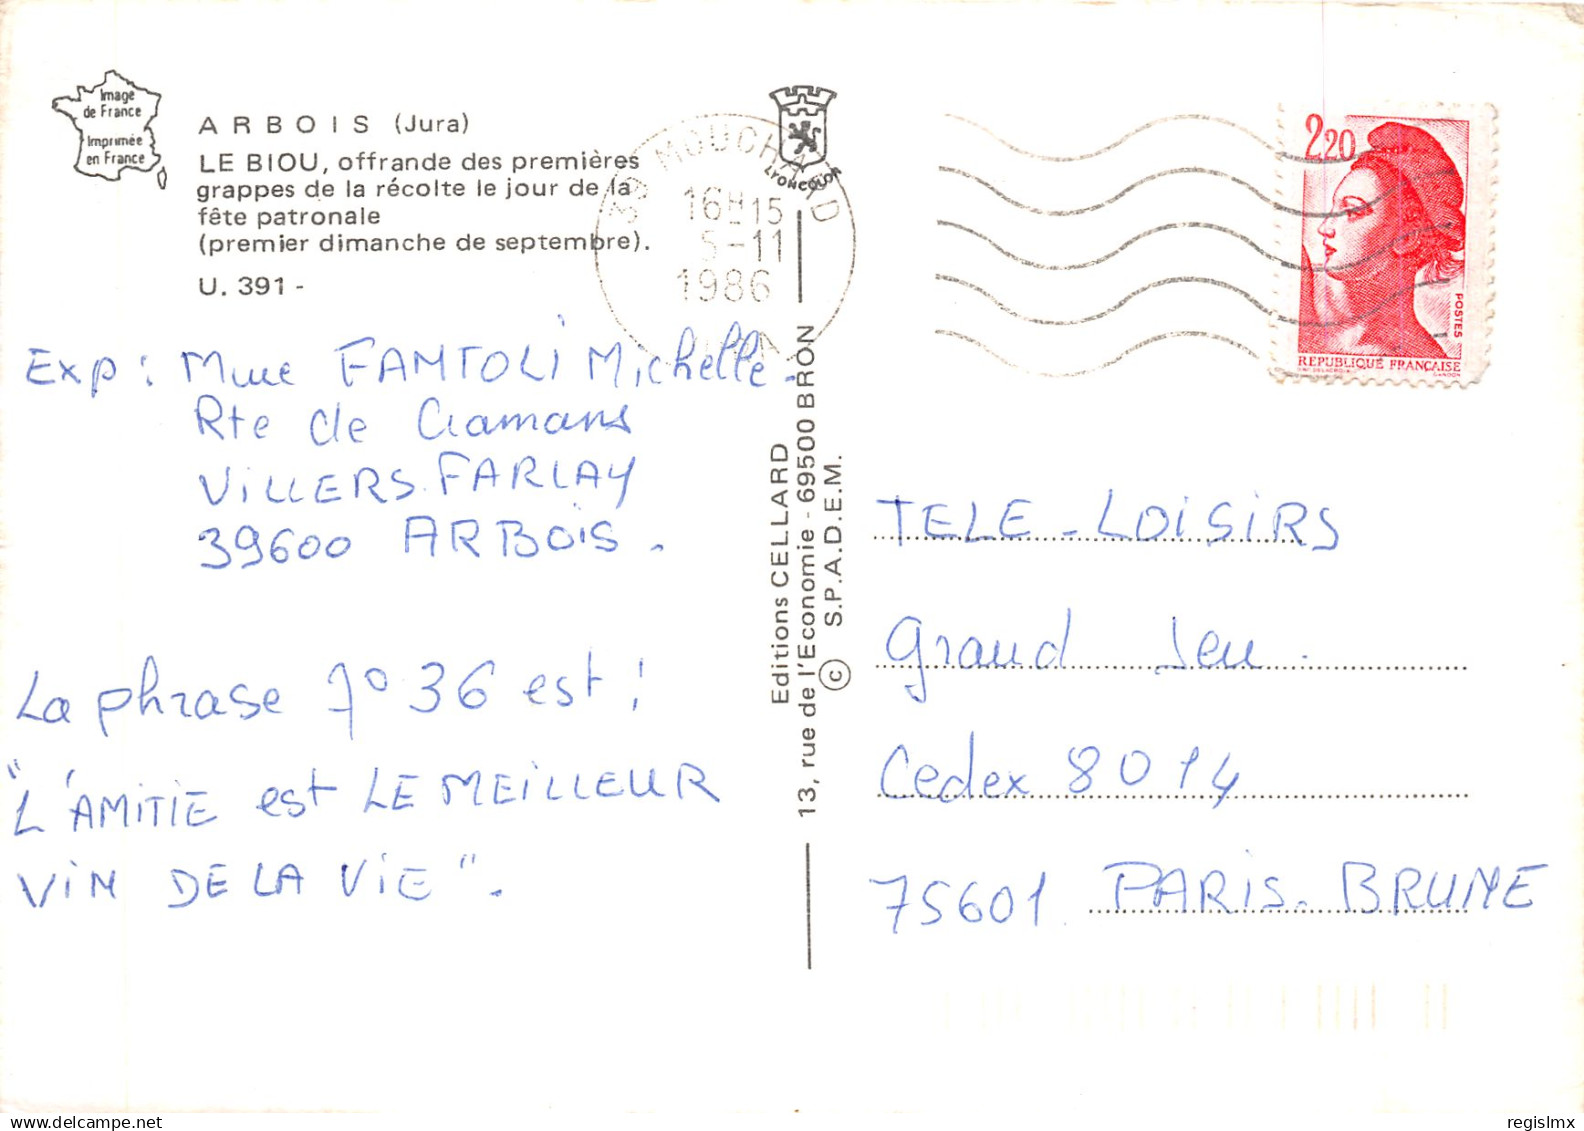 Image
de France
Imprimée
en France
ARBOIS (Jura)
LE BIOU, offrande des premières
grappes de la récolte le jour de la
fête patronale
(premier dimanche de septembre).
U. 391 -
Exp : Mme FAMTOLI Michelle.
Rte de Cramans
VILLERS.FARLAY
39600 ARBOIS.
La phrase n° 36 est !
"L'AMITIE est LE MEILLEUR
VIN DE LA VIE".
39 MOUCHARD
16H15
5-11
1986
JURA
LYONCOLOR
Editions CELLARD
13, rue de l'Economie - 69500 BRON
© S.P.A.D.E.M.
2,20
POSTES
REPUBLIQUE FRANÇAISE
GANDON
TELE-LOISIRS
Grand Jeu.
Cedex 8014
75601 PARIS.BRUNE
regislmx